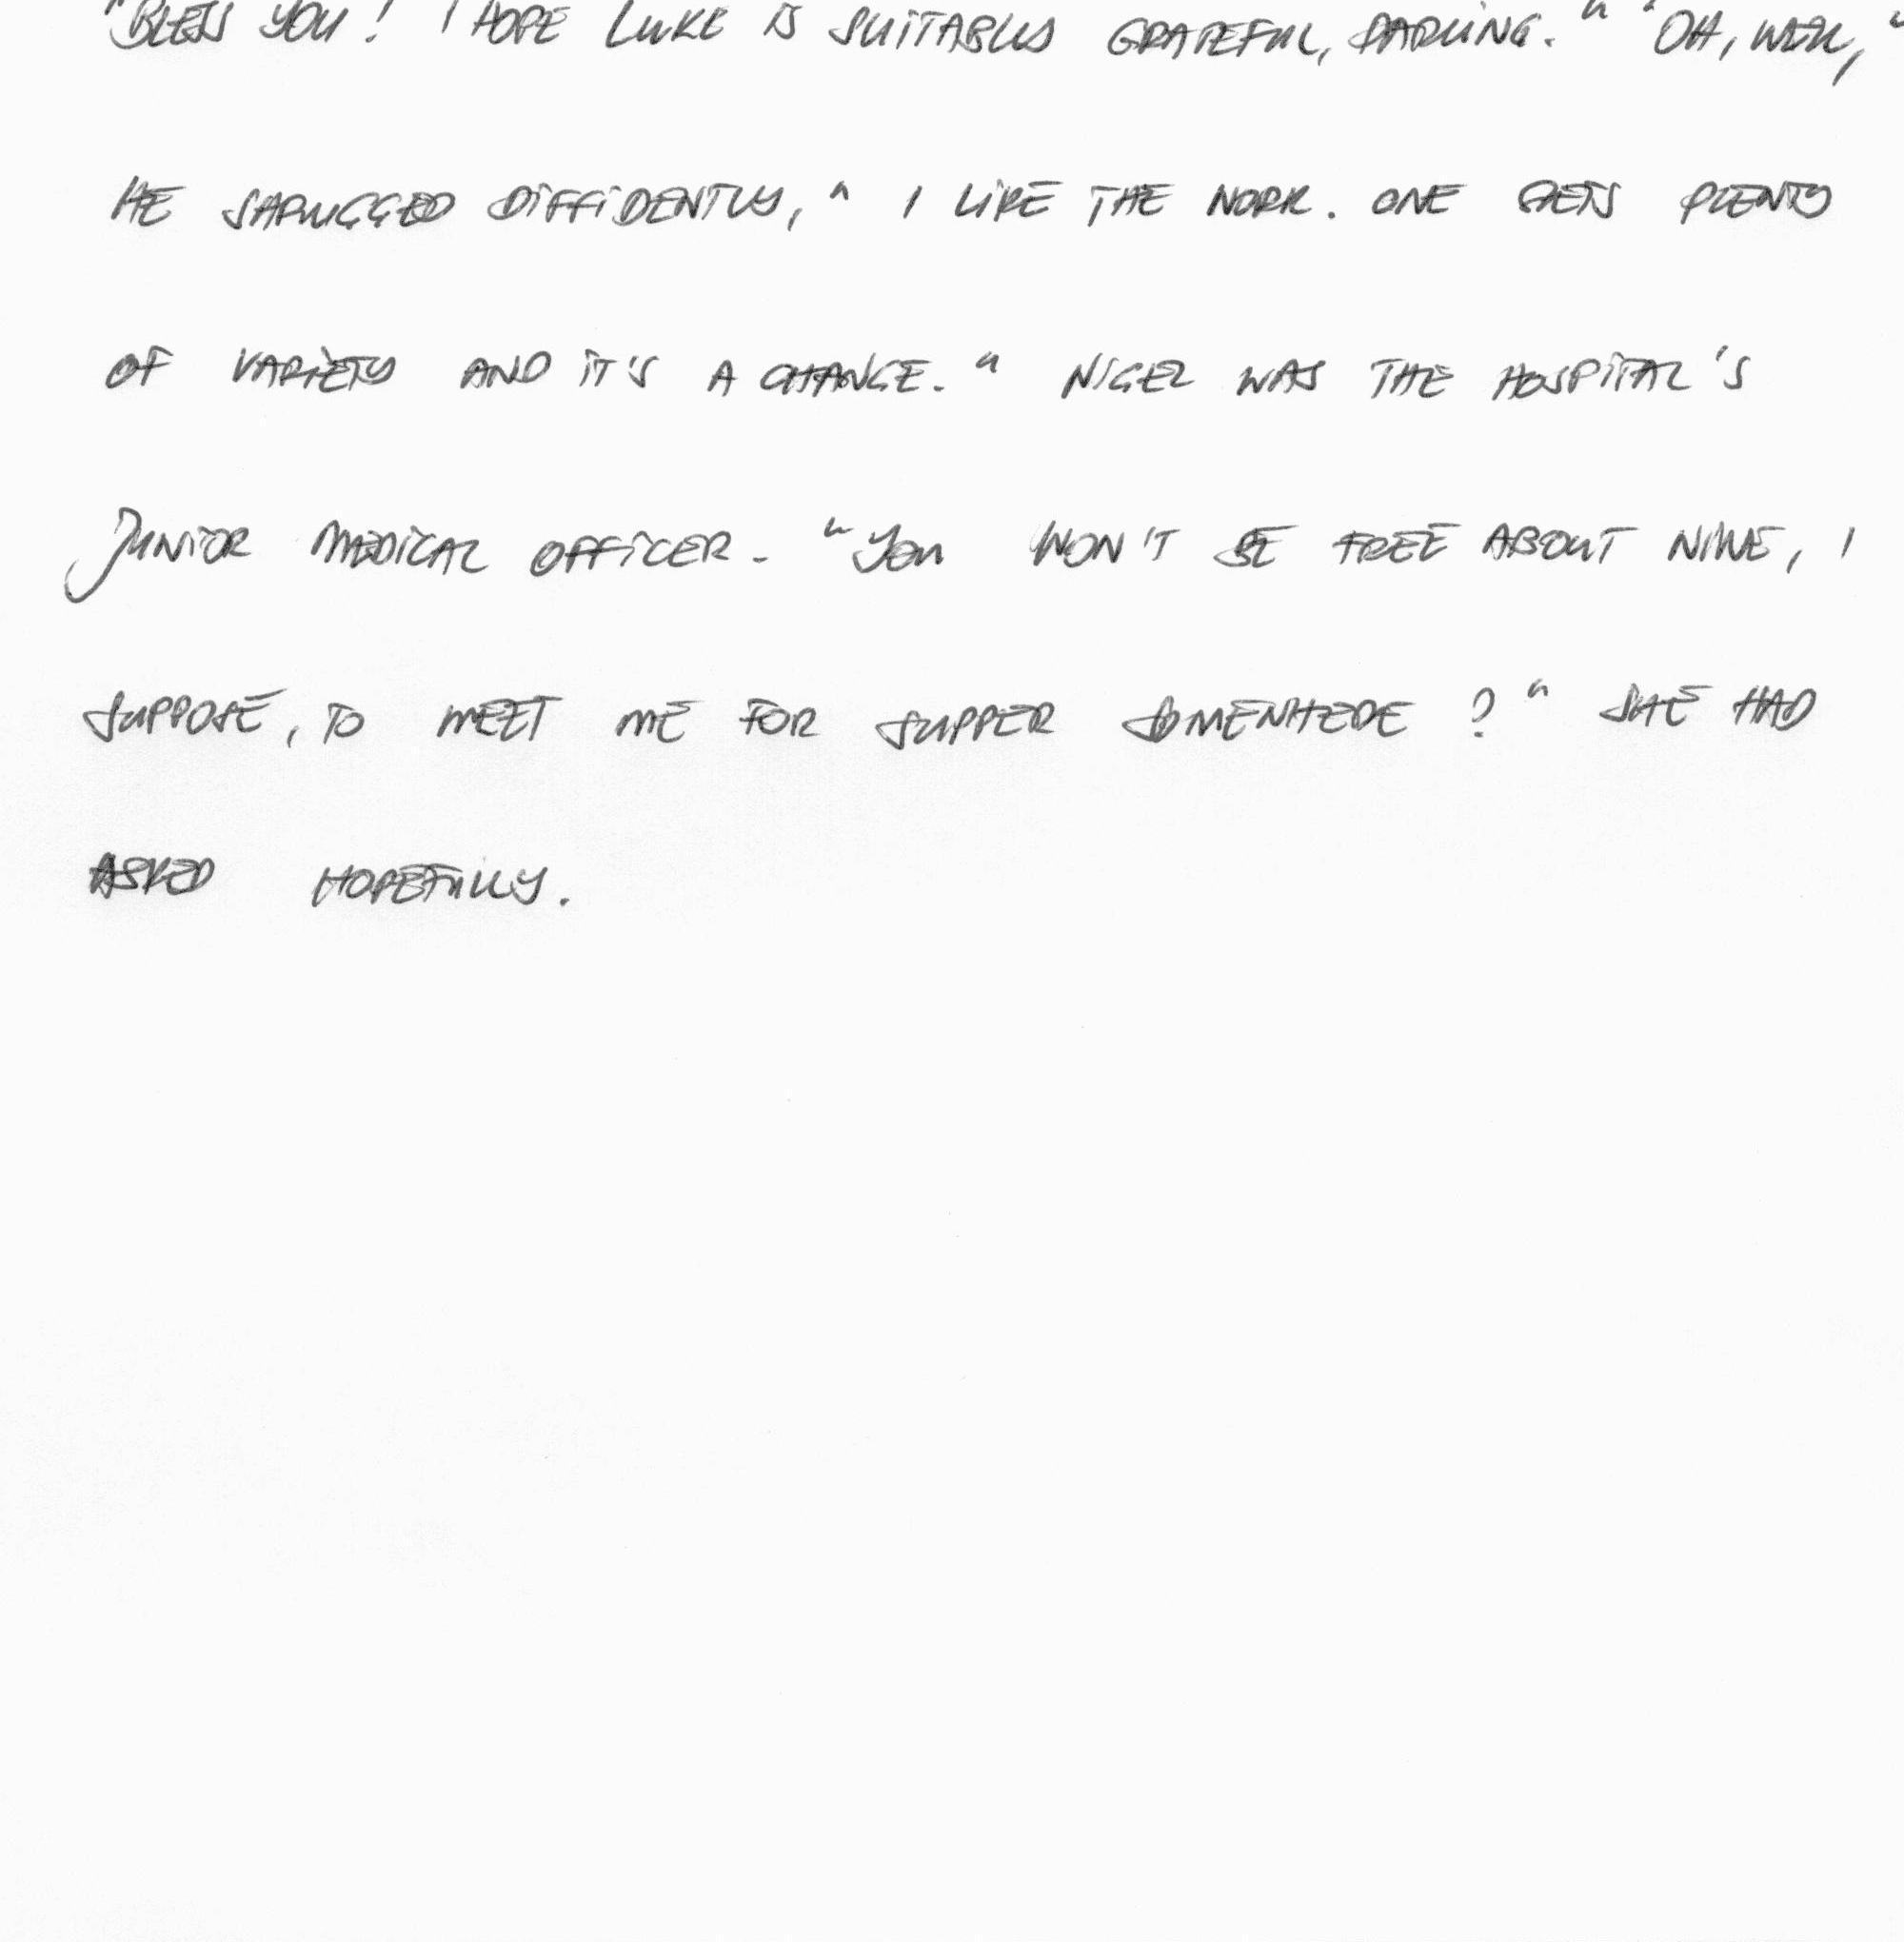 "BLESS YOU! I HOPE LUKE IS SUITABLY GRATEFUL, DARLING." "OH, WELL,"
HE SHRUGGED DIFFIDENTLY, " I LIKE THE WORK. ONE GETS PLENTY
OF VARIETY AND IT'S A CHANGE." NIGEL WAS THE HOSPITAL'S
JUNIOR MEDICAL OFFICER. "YOU WON'T BE FREE ABOUT NINE, I
SUPPOSE, TO MEET ME FOR SUPPER SOMEWHERE?" SHE HAD
ASKED HOPEFULLY.